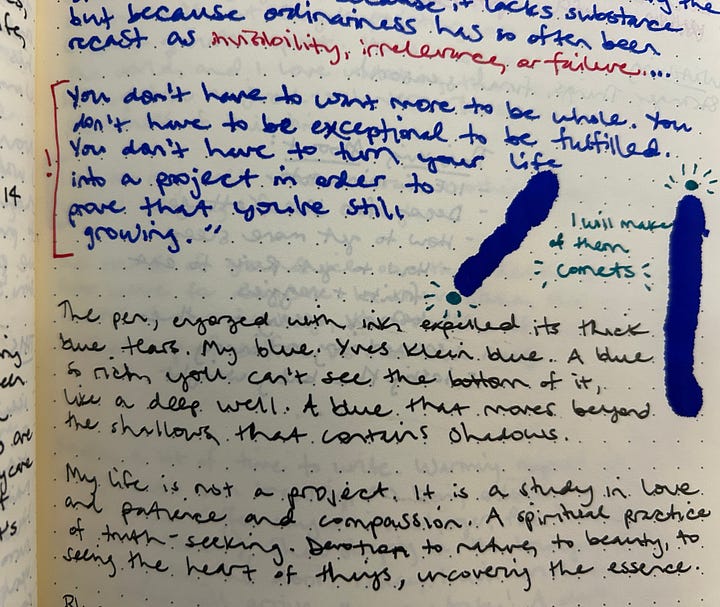 because it lacks substance
but because ordinariness has so often been
recast as invisibility, irrelevance, or failure....
You don't have to want more to be whole. You
don't have to be exceptional to be fulfilled.
You don't have to turn your life
into a project in order to
prove that you're still
growing."
!
14
I will make
of them
comets
The pen, engorged with ink expelled its thick
blue tears. My blue. Yves Klein blue. A blue
so rich you can't see the bottom of it,
like a deep well. A blue that moves beyond
the shallows, that contains shadows.
My life is not a project. It is a study in love
and patience and compassion. A spiritual practice
of truth-seeking. Devotion to nature, to beauty, to
seeing the heart of things, uncovering the essence.